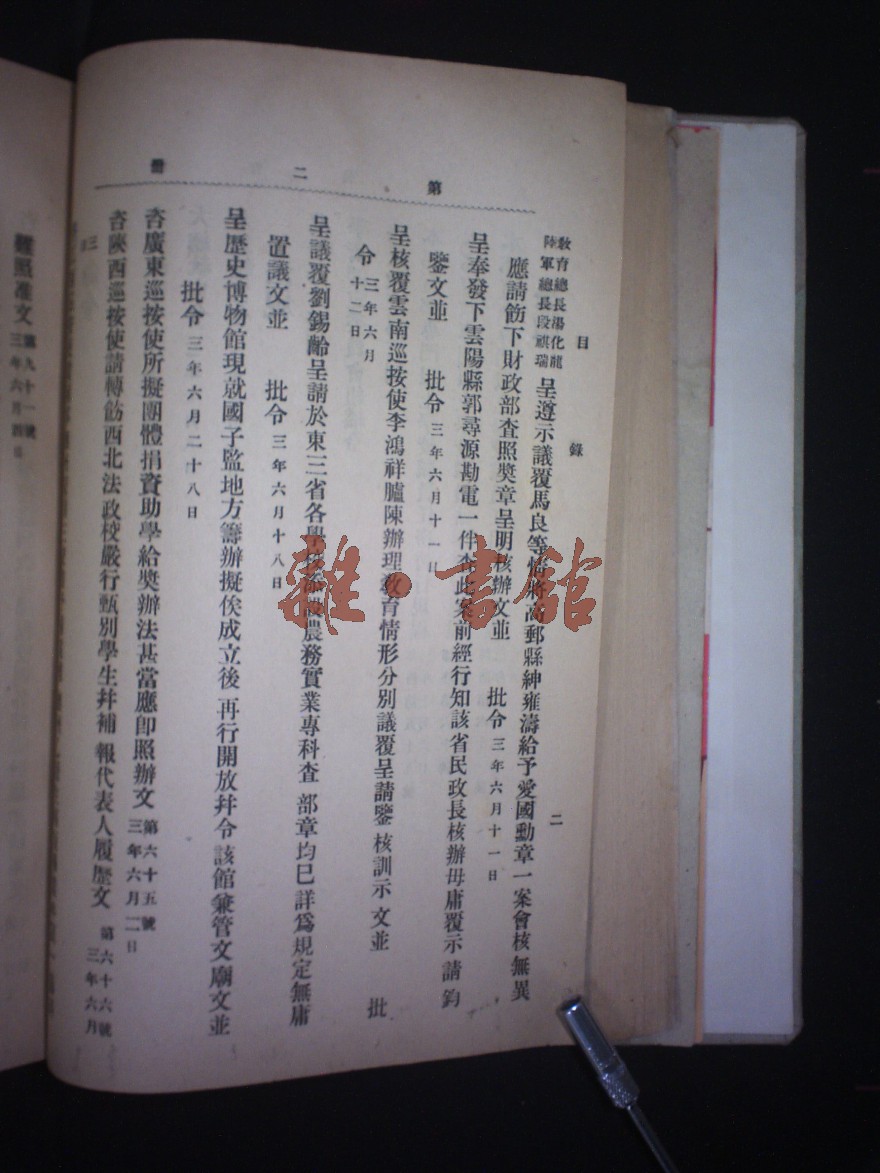 第二冊
目錄 二
教育總長湯化龍
陸軍總長段祺瑞
呈遵示議覆馬良等
將高郵縣紳雍濤給予愛國勳章一案會核無異
應請飭下財政部查照獎章呈明核辦文並 批令 三年六月十一日
呈奉發下雲陽縣郭尋源勘電一件查此案前經行知該省民政長核辦毋庸覆示請鈞
鑒文並 批令 三年六月十一日
呈核覆雲南巡按使李鴻祥臚陳辦理教育情形分別議覆呈請鑒核訓示文並 批
令 三年六月十二日
呈議覆劉錫齡呈請於東三省各學
農務實業專科查 部章均已詳爲規定無庸
置議文並 批令 三年六月十八日
呈歷史博物館現就國子監地方籌辦擬俟成立後再行開放幷令該館兼管文廟文並
批令 三年六月二十八日
咨廣東巡按使所擬團體捐資助學給獎辦法甚當應卽照辦文 第六十五號 三年六月二日
咨陝西巡按使請轉飭西北法政校嚴行甄別學生幷補報代表人履歷文 第六十六號 三年六月
三日
照准文 第九十一號 三年六月四日
雜·書館